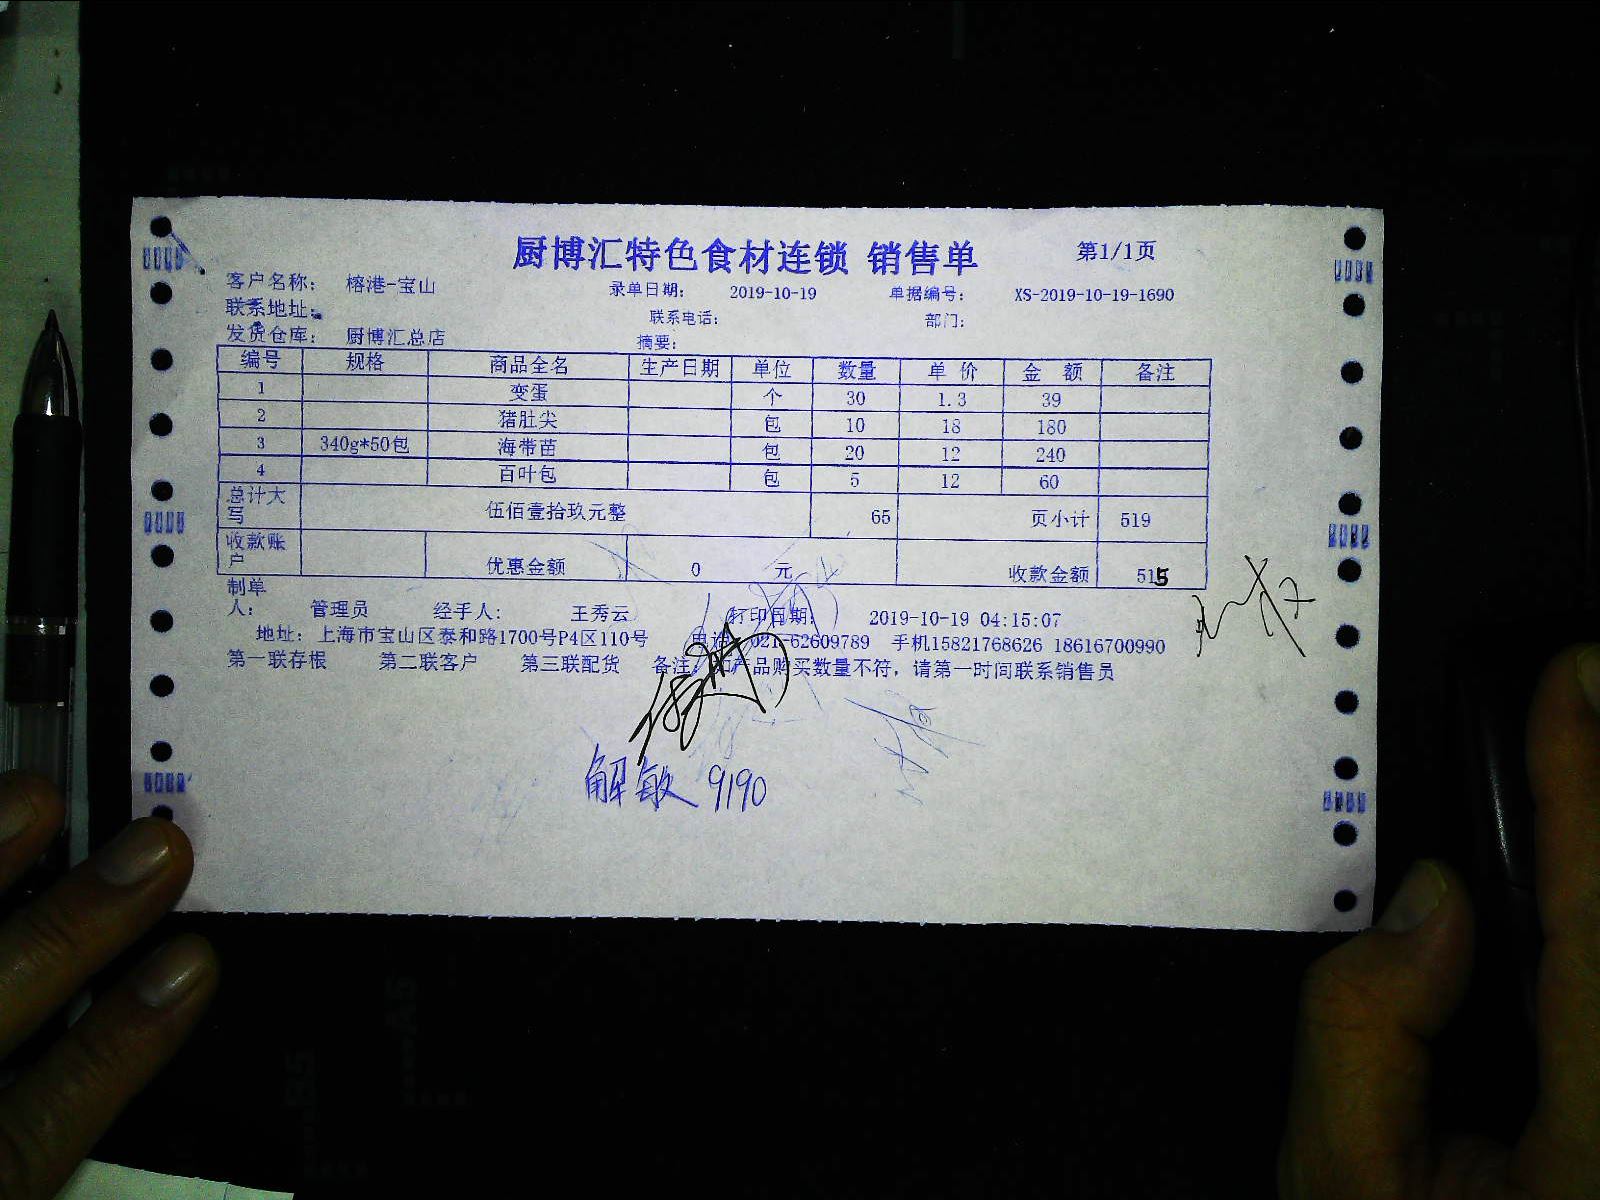 厨博汇特色食材连锁 销售单 第1/1页
客户名称： 榕港-宝山 录单日期： 2019-10-19 单据编号： XS-2019-10-19-1690
联系地址： 联系电话： 部门：
发货仓库： 厨博汇总店 摘要：
编号 规格 商品全名 生产日期 单位 数量 单 价 金 额 备注
1 变蛋 个 30 1.3 39
2 猪肚尖 包 10 18 180
3 340g*50包 海带苗 包 20 12 240
4 百叶包 包 5 12 60
总计大写 伍佰壹拾玖元整 65 页小计 519
收款账户 优惠金额 0 元 收款金额 515
制单人： 管理员 经手人： 王秀云 打印日期： 2019-10-19 04:15:07
地址：上海市宝山区泰和路1700号P4区110号 电话 021-62609789 手机15821768626 18616700990
第一联存根 第二联客户 第三联配货 备注： 产品购买数量不符，请第一时间联系销售员
解敏 9190